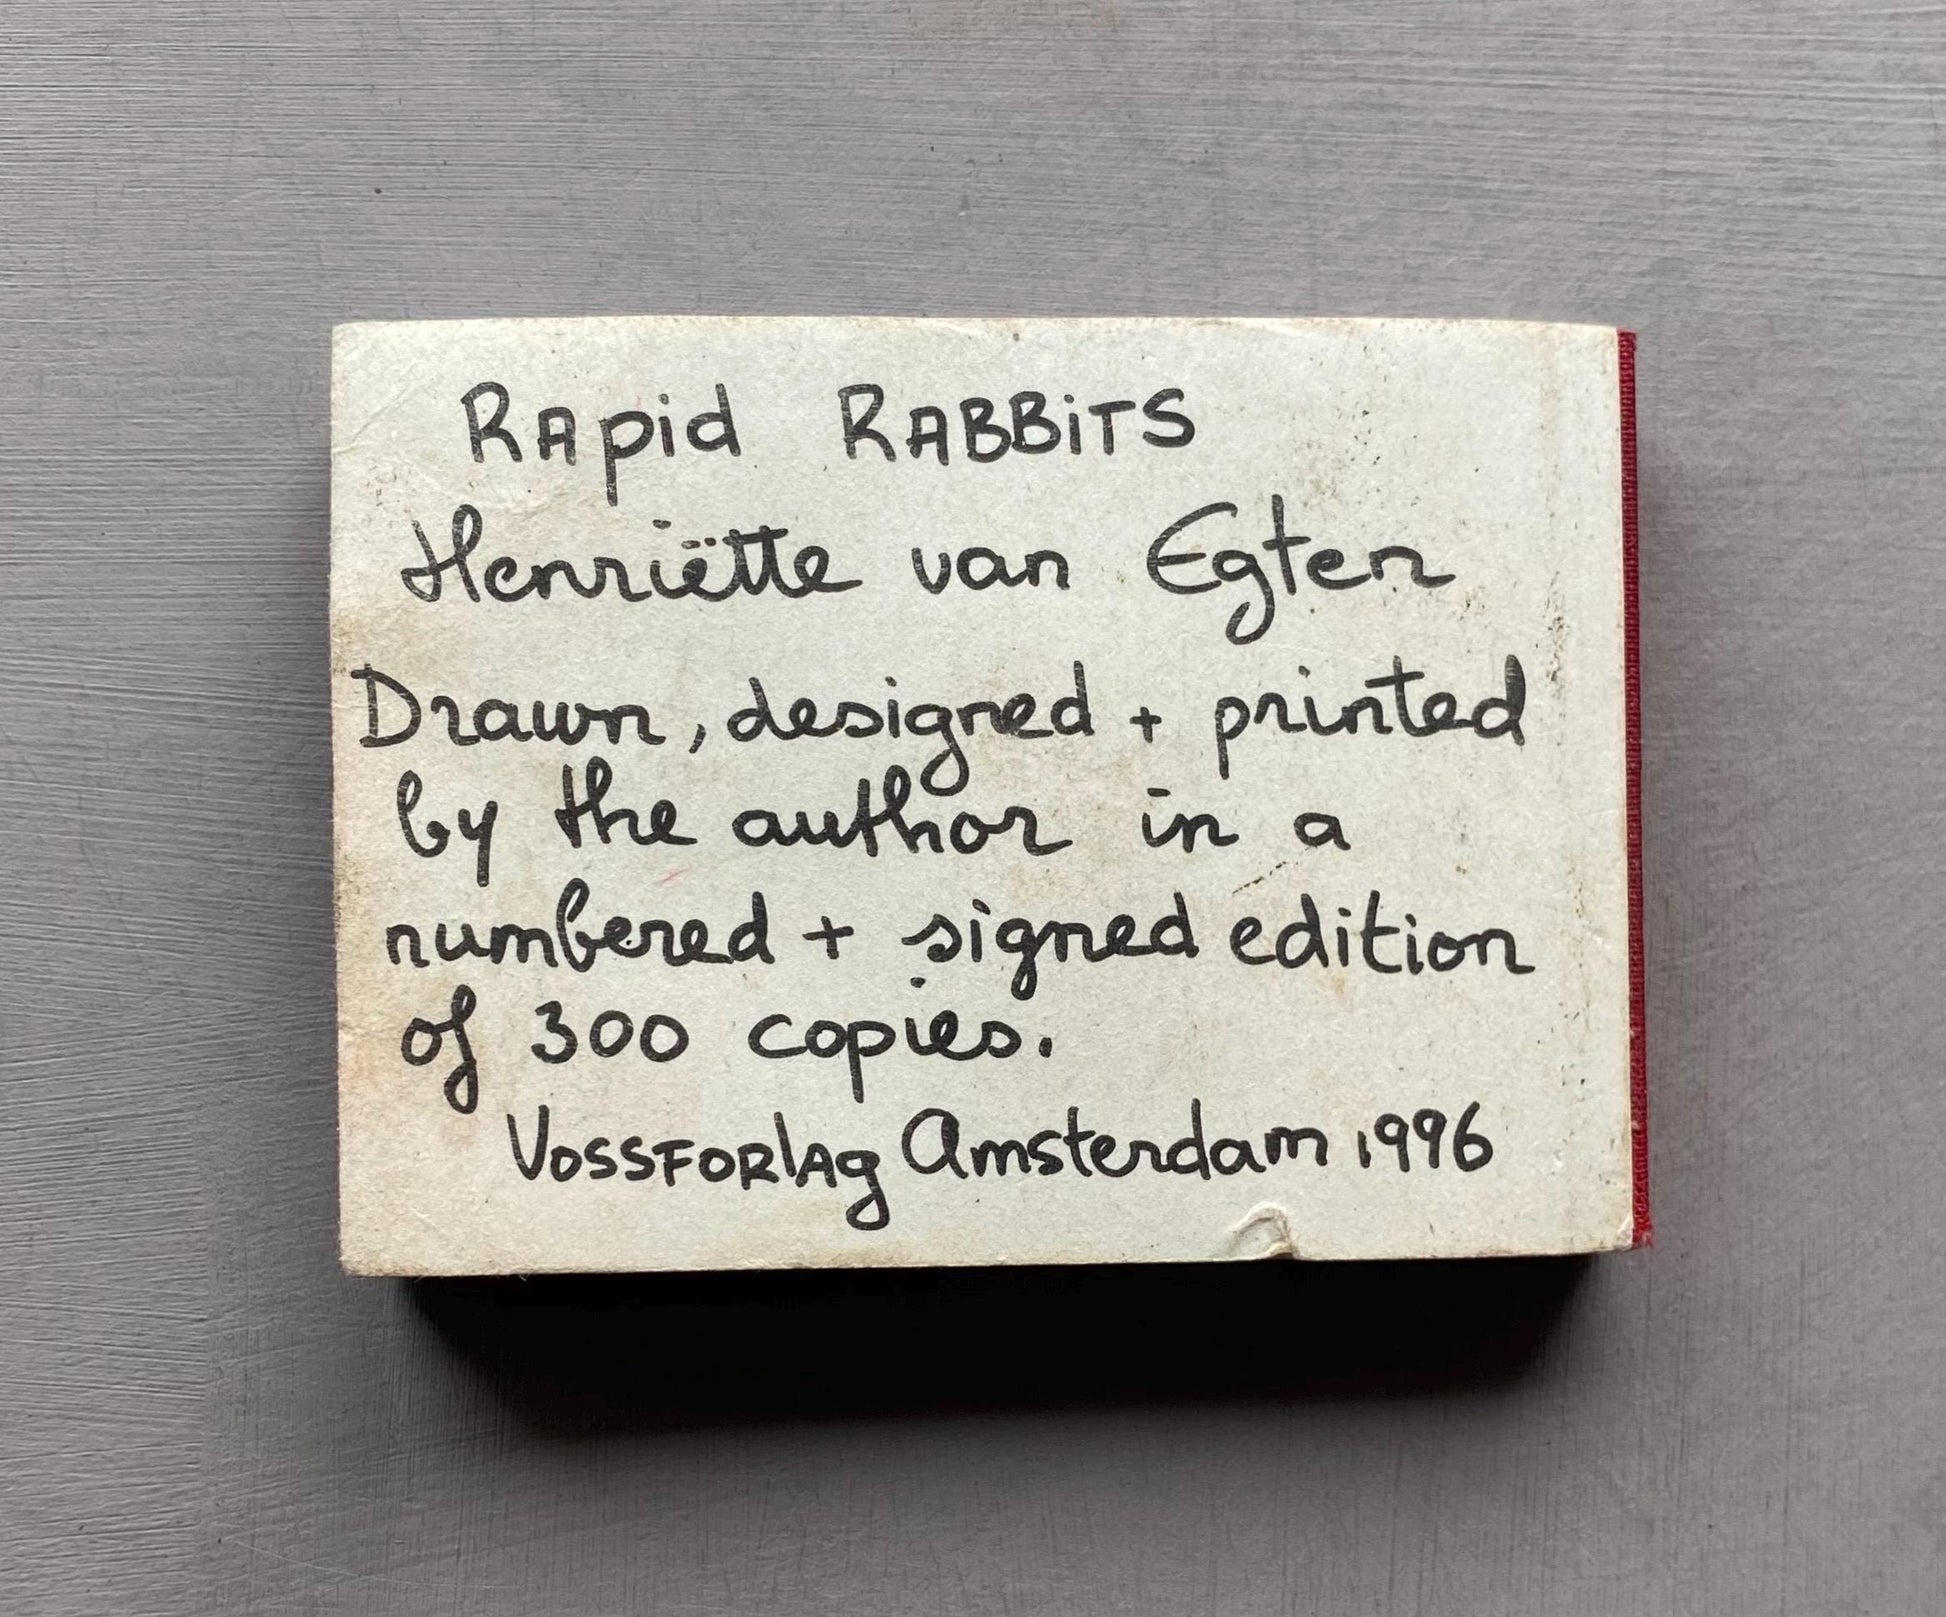 RApid RABBiTS
Henriëtte van Egten
Drawn, designed + printed
by the author in a
numbered + signed edition
of 300 copies.
VOSSFORlAg Amsterdam 1996